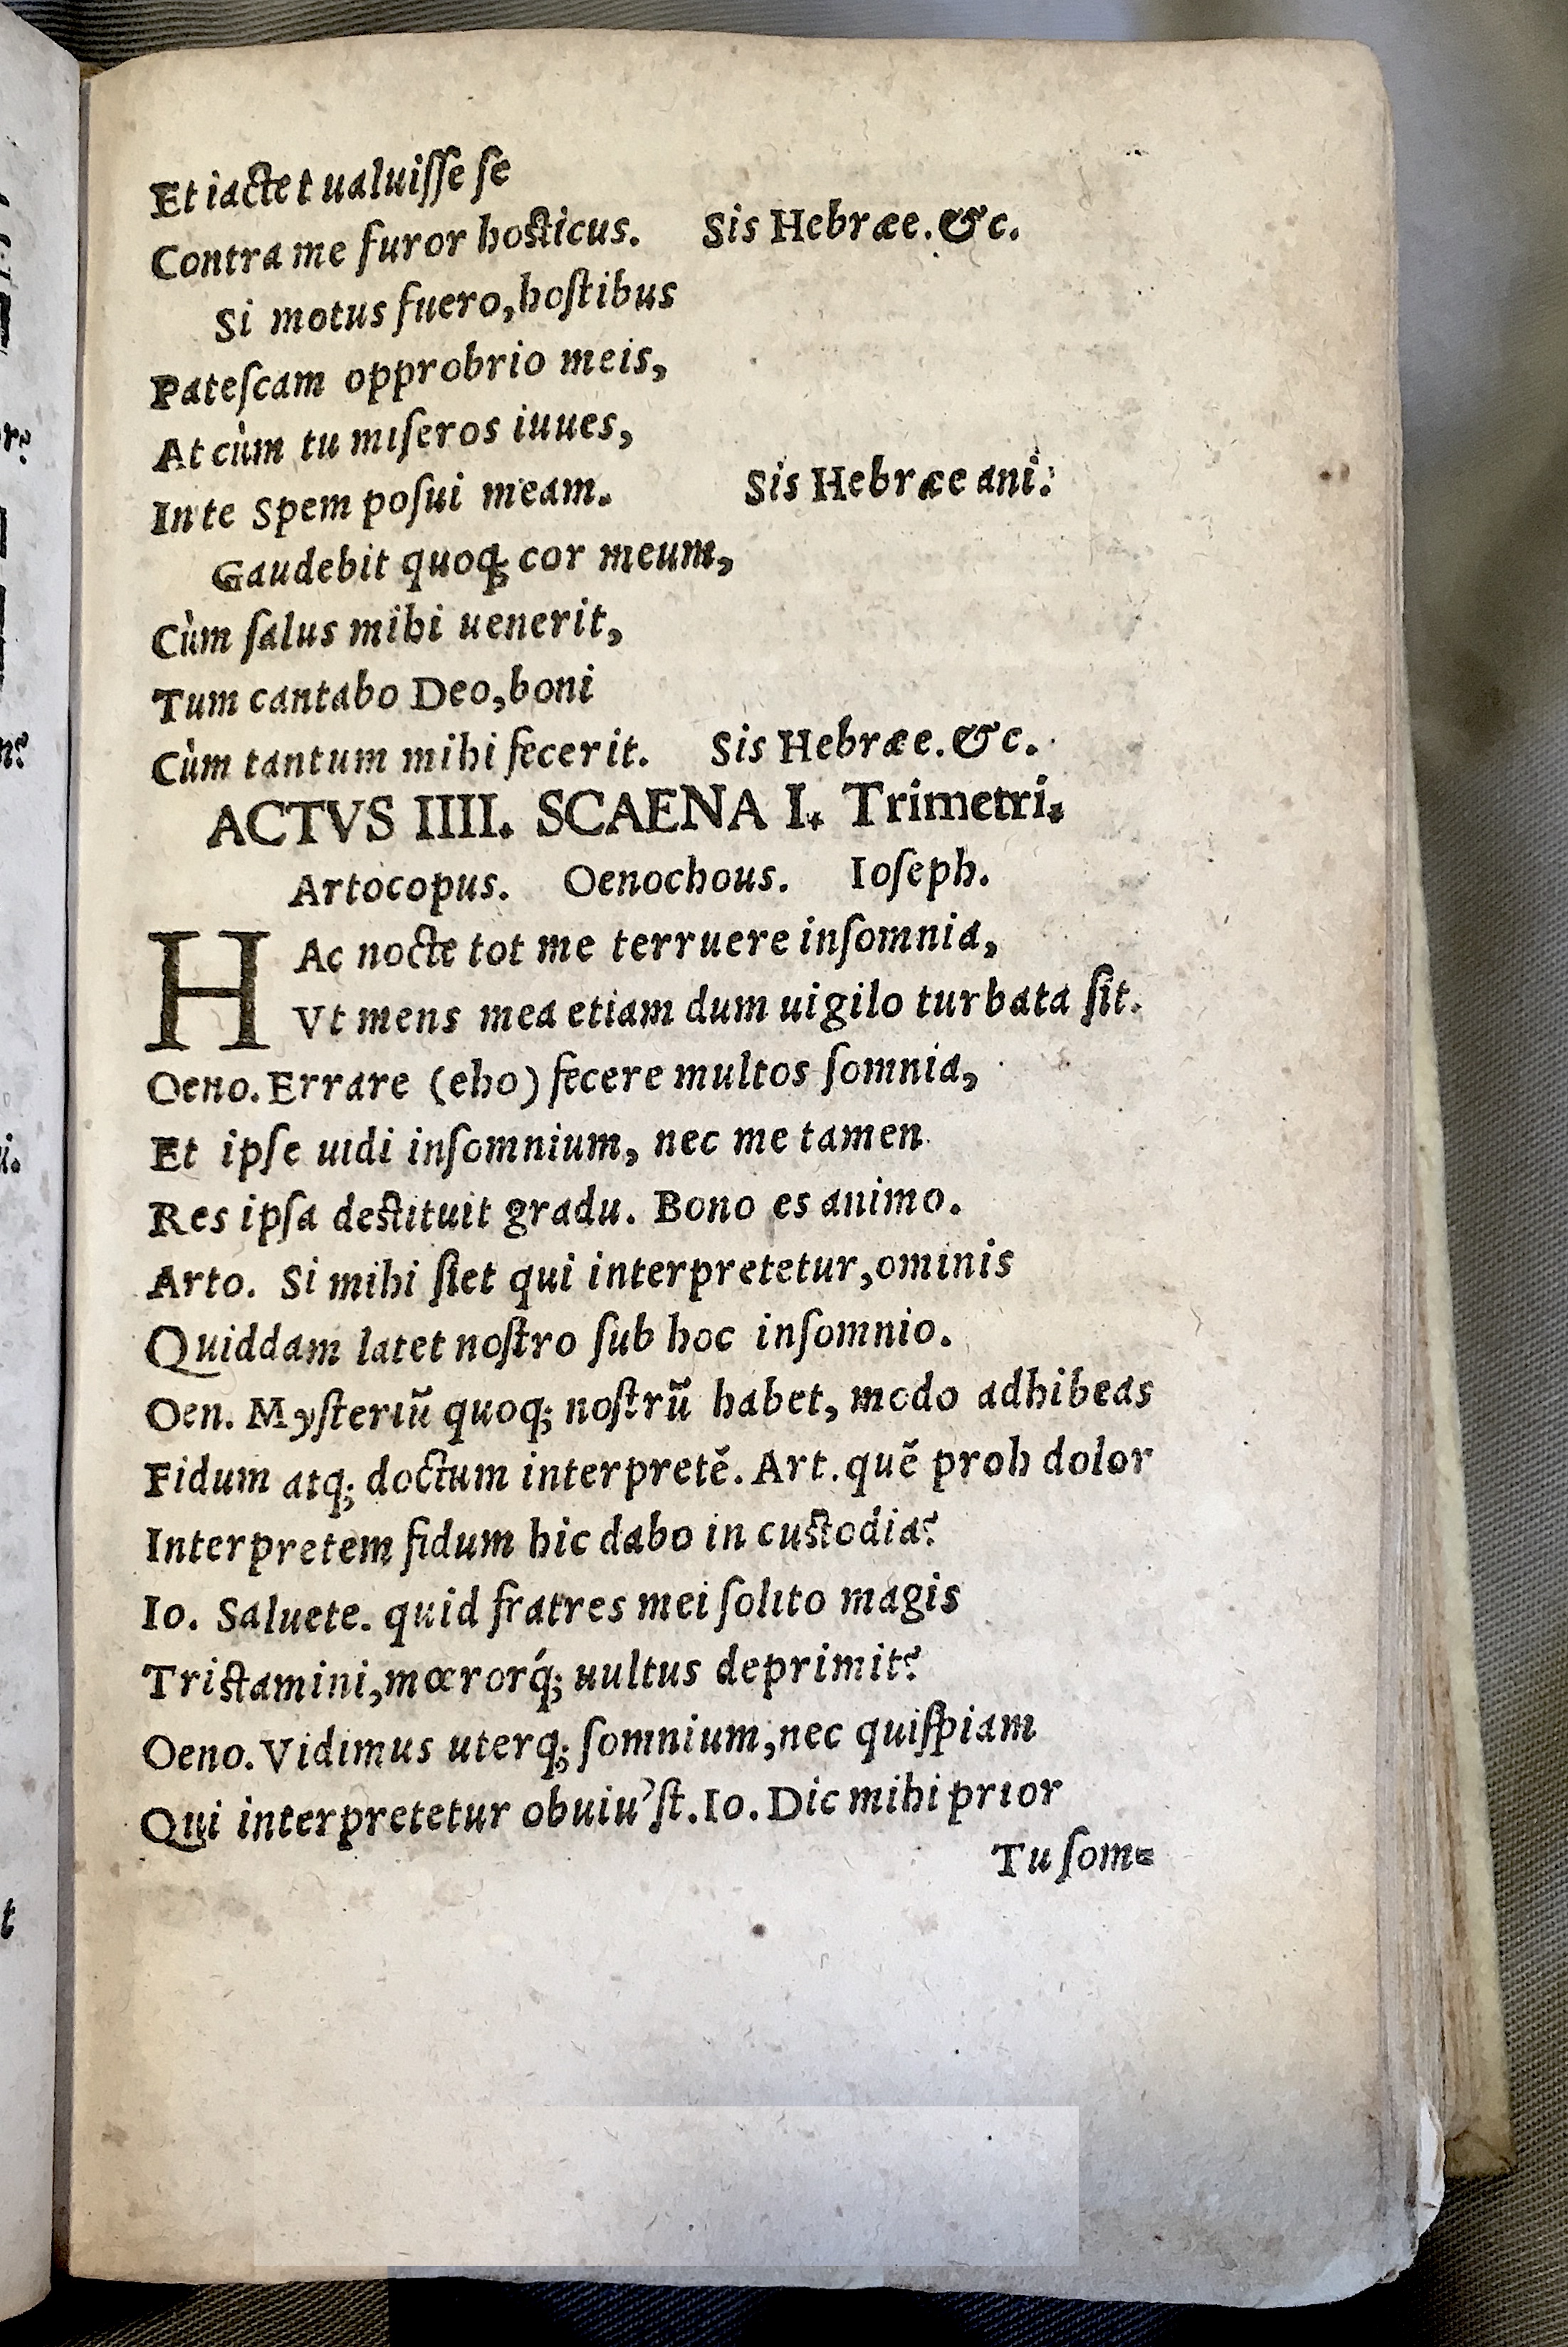 Et iactet ualuiſſe ſe
Contra me furor hosticus. Sis Hebræe. &c.
Si motus fuero, hoſtibus
Pateſcam opprobrio meis,
At cùm tu miſeros iuues,
In te spem poſui meam. Sis Hebræe ani:
Gaudebit quoq; cor meum,
Cùm ſalus mihi uenerit,
Tum cantabo Deo, boni
Cùm tantum mihi fecerit. Sis Hebræe. &c.
ACTVS IIII. SCAENA I. Trimetri.
Artocopus. Oenochous. Ioſeph.
HAc nocte tot me terruere inſomnia,
Vt mens mea etiam dum uigilo turbata ſit.
Oeno. Errare (eho) fecere multos ſomnia,
Et ipſe uidi inſomnium, nec me tamen
Res ipſa destituit gradu. Bono es animo.
Arto. Si mihi ſiet qui interpretetur, ominis
Quiddam latet noſtro ſub hoc inſomnio.
Oen. Myſteriũ quoq; noſtrũ habet, modo adhibeas
Fidum atq; doctum interpretẽ. Art. quẽ proh dolor
Interpretem fidum hic dabo in custodia?
Io. Saluete. quid fratres mei ſolito magis
Tristamini, mœrorq́; uultus deprimit?
Oeno. Vidimus uterq; ſomnium, nec quiſpiam
Qui interpretetur obuiu'ſt. Io. Dic mihi prior
Tu ſom=